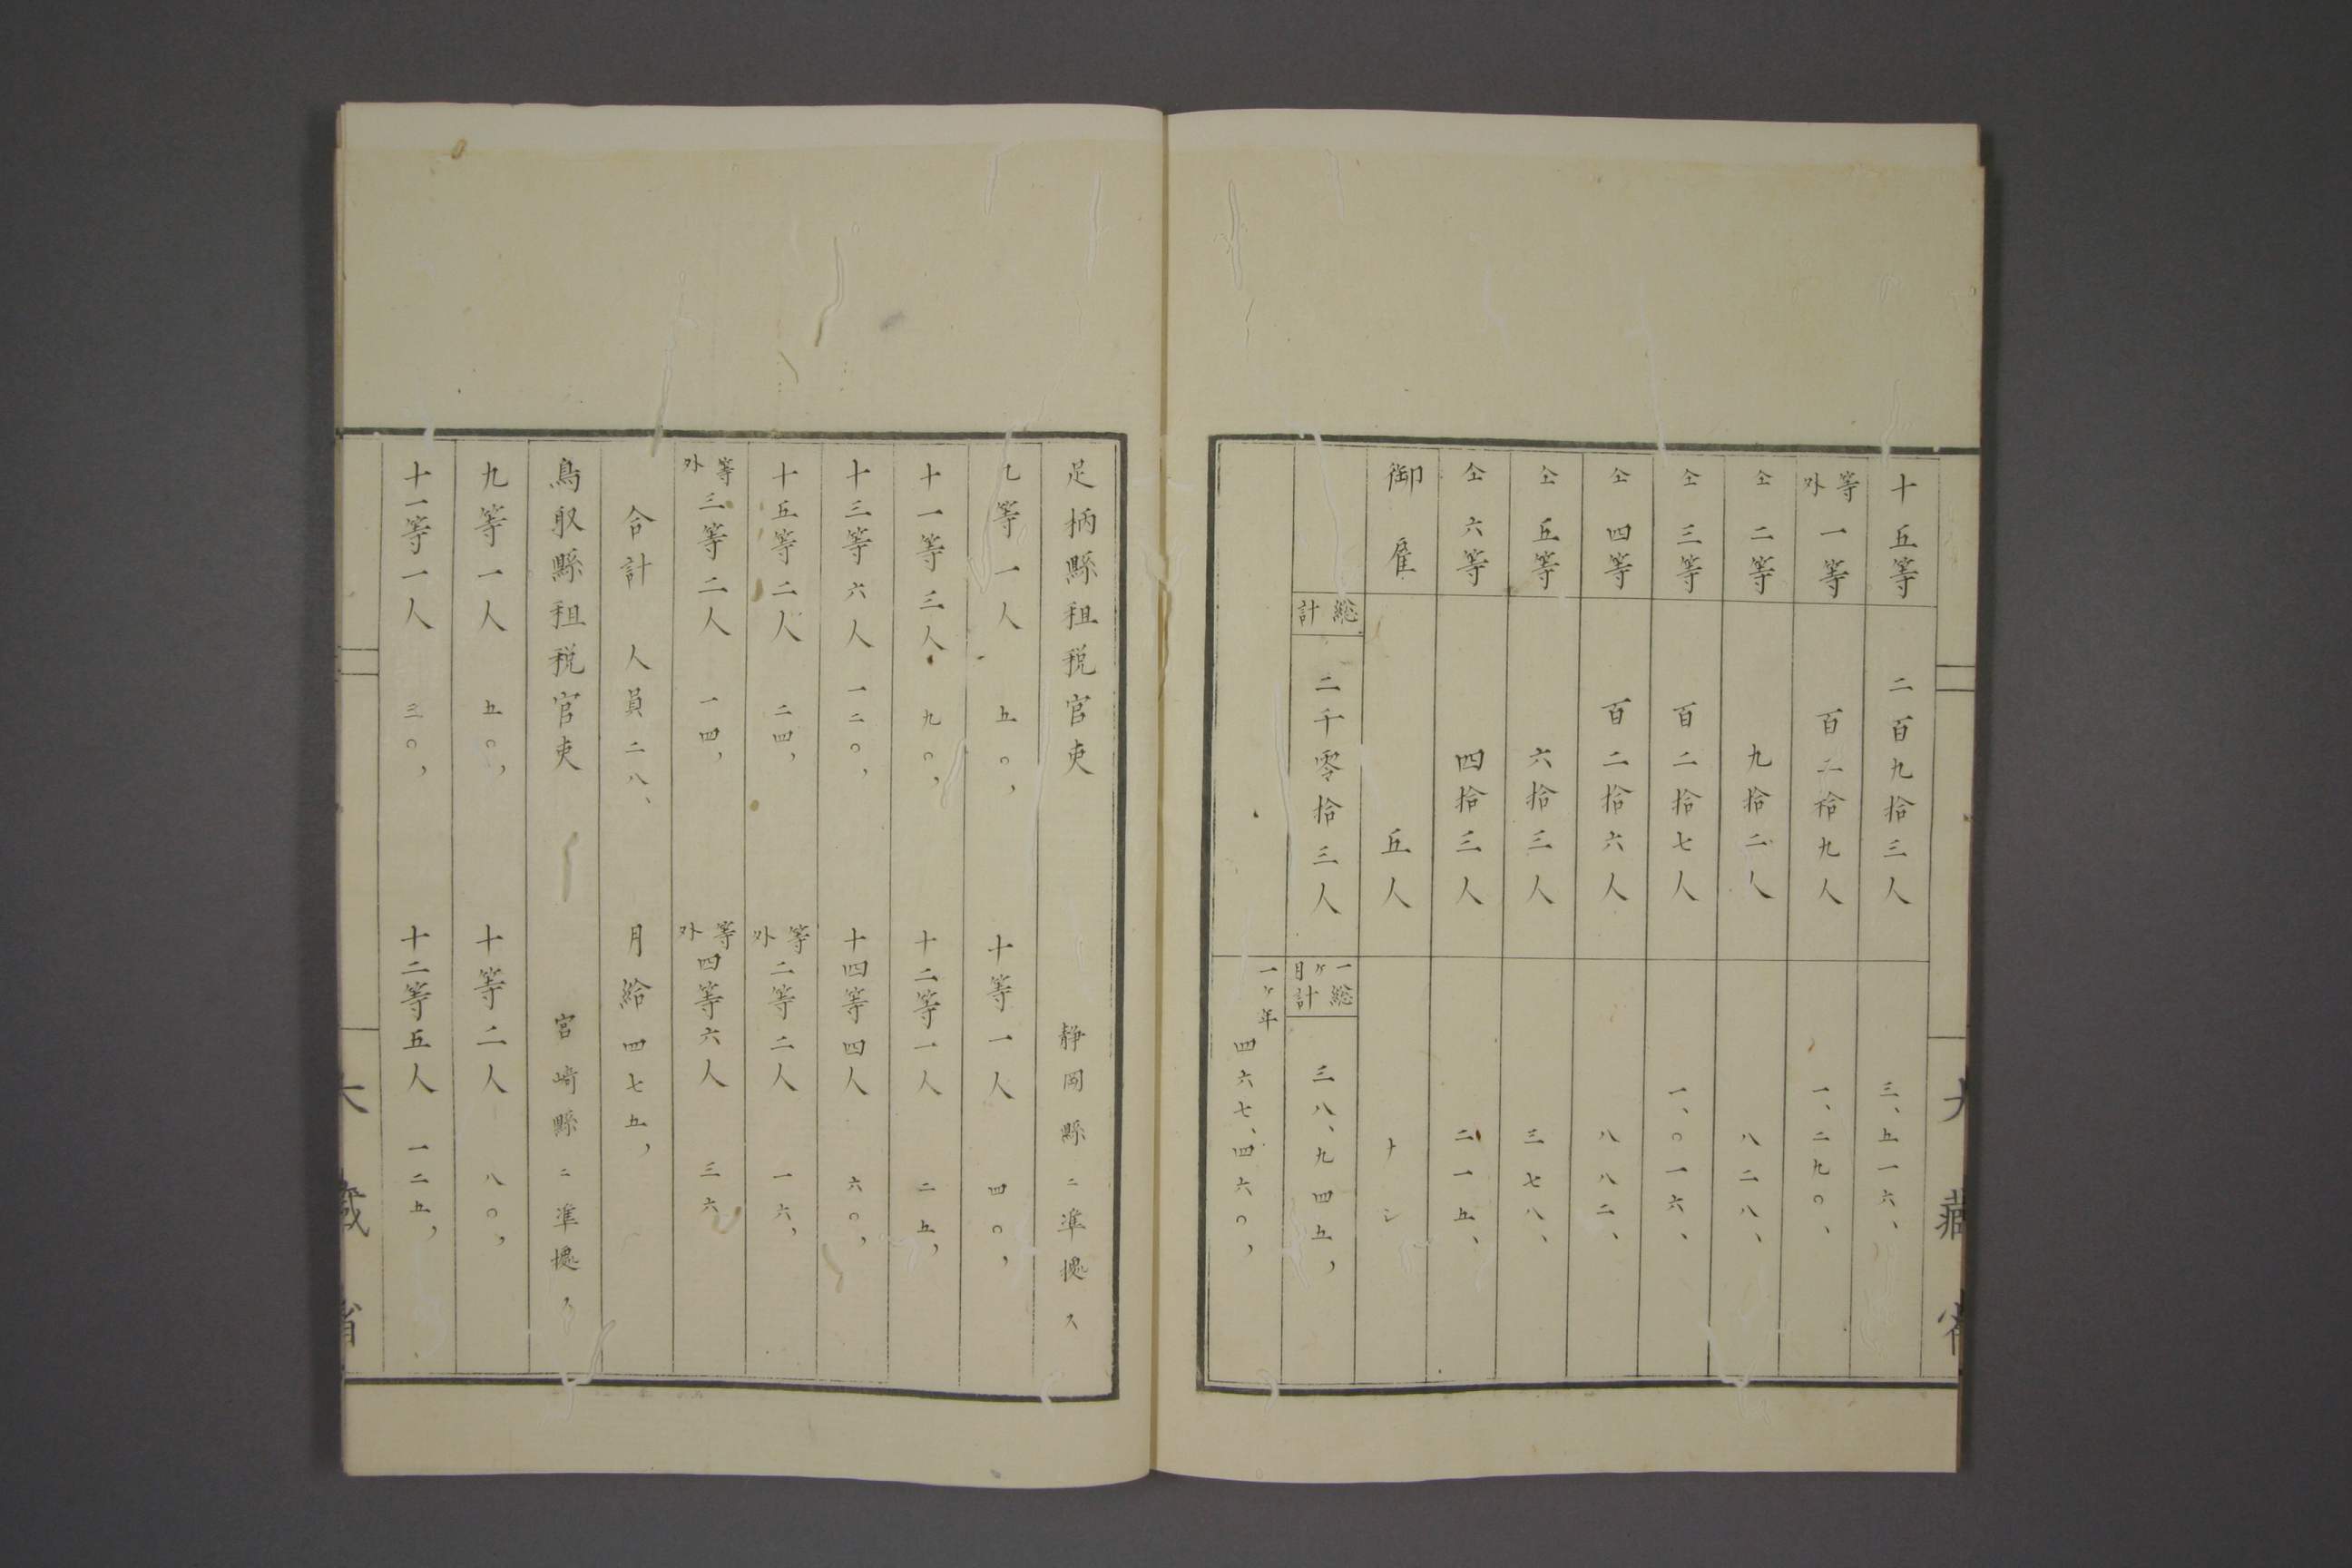 十五等 二百九拾三人 三、五一六、
等外一等 百二拾九人 一、二九〇、
仝二等 九拾二人 八二八、
仝三等 百二拾七人 一、〇一六、
仝四等 百二拾六人 八八二、
仝五等 六拾三人 三七八、
仝六等 四拾三人 二一五、
御雇 五人 ナシ
総計 二千零拾三人 一ケ月総計 三八、九四五、
一ケ年 四六七、四六〇、
足柄縣租税官吏 静岡縣ニ準擬ス
九等一人 五〇、 十等一人 四〇、
十一等三人 九〇、 十二等一人 二五、
十三等六人 一二〇、 十四等四人 六〇、
十五等二人 二四、 等外二等二人 一六、
等外三等二人 一四、 等外四等六人 三六
合計 人員二八、 月給四七五、
鳥取縣租税官吏 宮崎縣ニ準擬ス
九等一人 五〇、 十等二人 八〇、
十一等一人 三〇、 十二等五人 一二五、
大藏省